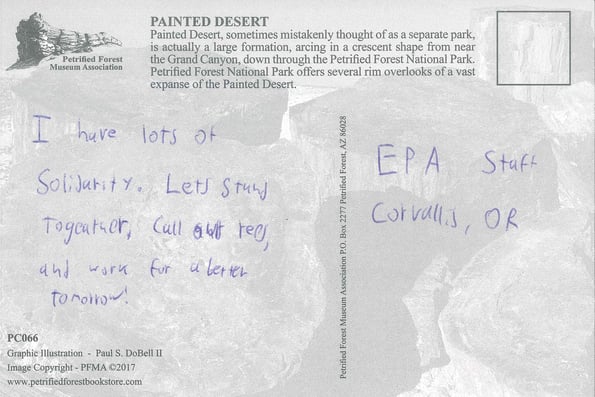 PAINTED DESERT
Painted Desert, sometimes mistakenly thought of as a separate park,
is actually a large formation, arcing in a crescent shape from near
the Grand Canyon, down through the Petrified Forest National Park.
Petrified Forest National Park offers several rim overlooks of a vast
expanse of the Painted Desert.
Petrified Forest
Museum Association
I have lots of
Solidarity. Lets stand
Togeather, Call our reps,
and work for a better
tomorrow!
Petrified Forest Museum Association P.O. Box 2277 Petrified Forest, AZ 86028
EPA Staff
Corvallis, OR
PC066
Graphic Illustration - Paul S. DoBell II
Image Copyright - PFMA ©2017
www.petrifiedforestbookstore.com